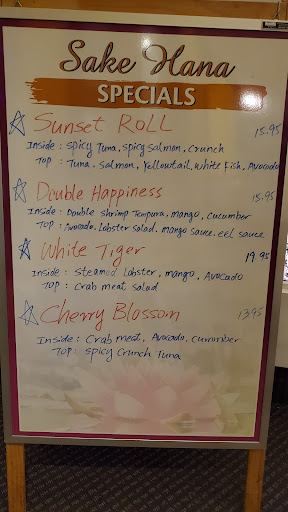 Sake Hana
SPECIALS
Sunset ROLL 15.95
Inside : Spicy Tuna, Spicy Salmon, Crunch
Top : Tuna, Salmon, Yellowtail, White Fish, Avocado
Double Happiness 15.95
Inside : Double shrimp Tempura, mango, Cucumber
Top : Avocado, Lobster Salad, mango sauce, eel sauce
White Tiger 19.95
Inside : Steamed Lobster, mango, Avocado
Top : Crab meat salad
Cherry Blossom 13.95
Inside : Crab meat, Avocado, cucumber
Top : Spicy Crunch Tuna